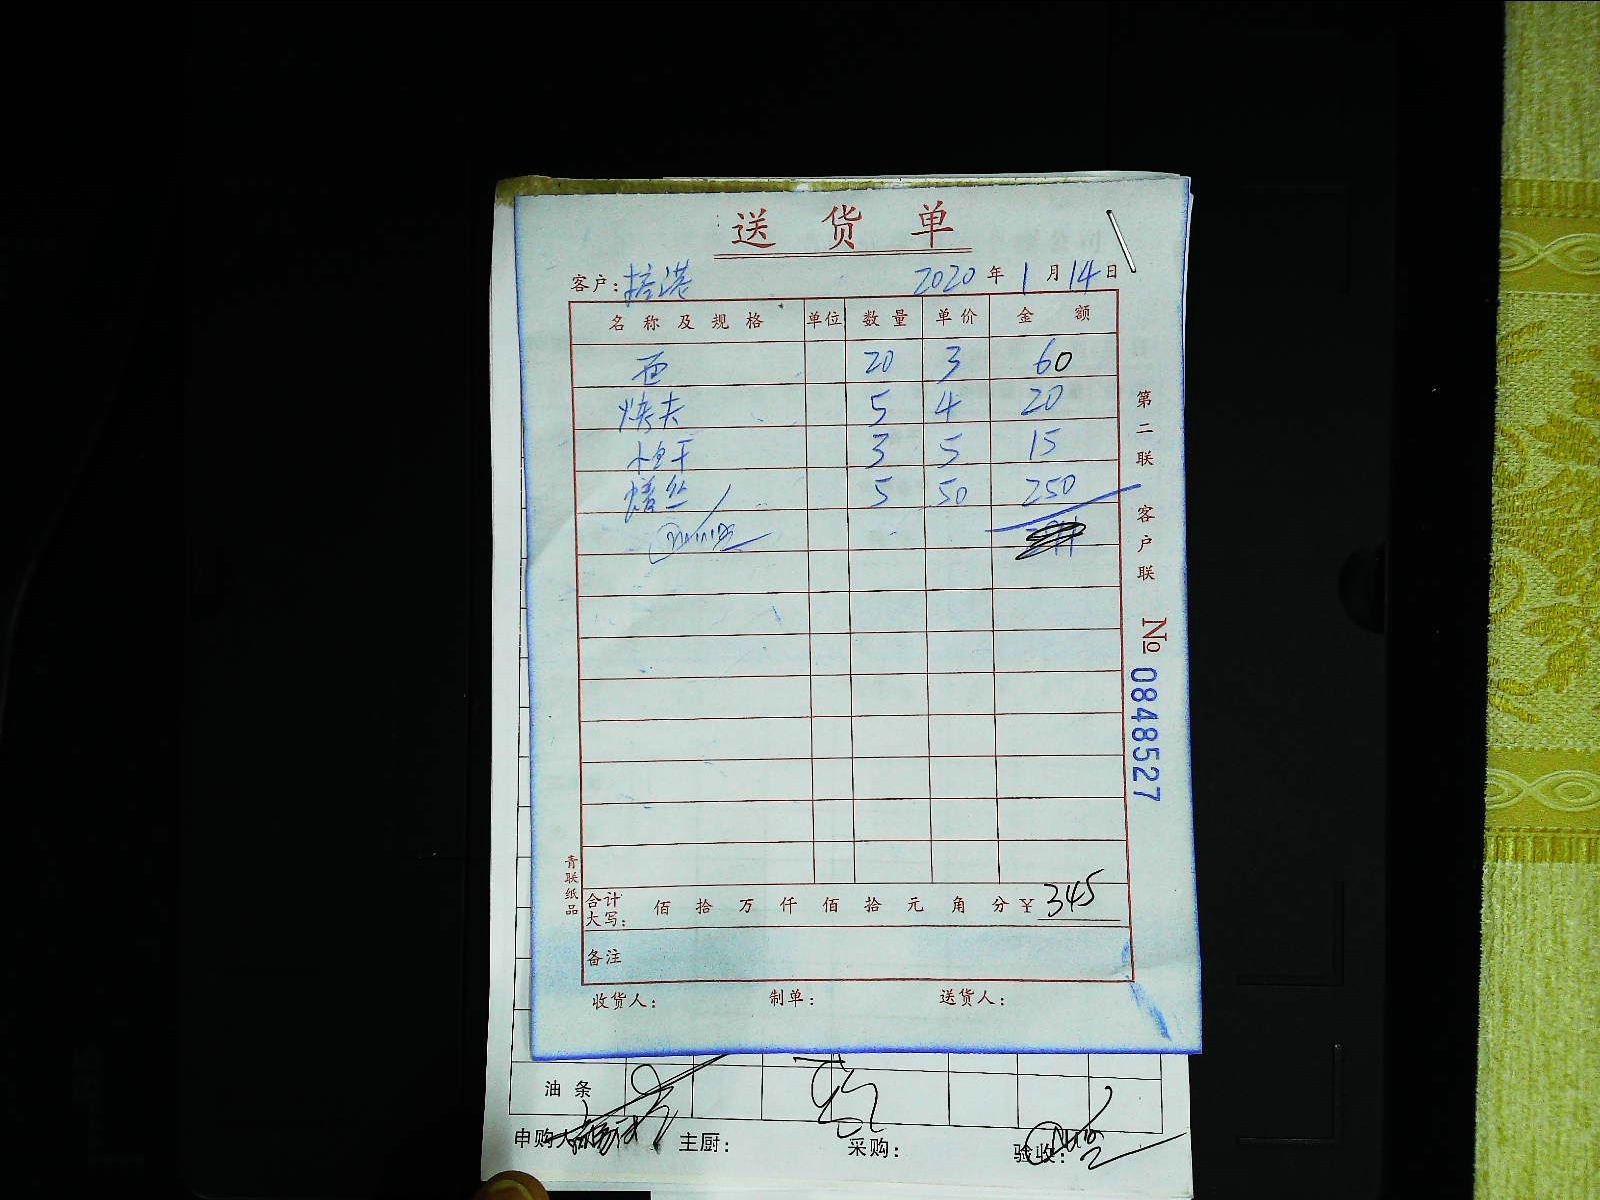 送货单
客户: 2020年1月14日
名称及规格 单位 数量 单价 金额
面 20 3 60
烤夫 5 4 20
干 3 5 15
丝 5 50 250
合计大写: 佰拾万仟佰拾元角分¥345
备注
收货人: 制单: 送货人:
第二联 客户联
№0848527
青联纸品
油条
申购人 主厨: 采购: 验收: